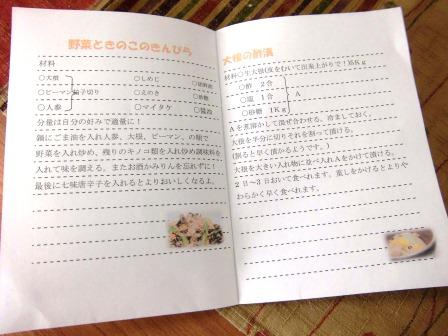 野菜ときのこのきんぴら
材料
○大根 ○しめじ
○ピーマン 千切り ○えのき ○砂糖
○人参 ○マイタケ ○醤油
分量は自分の好みで適量に！
鍋にごま油を入れ人参、大根、ピーマン、の順で
野菜を入れ炒め、残りのキノコ類を入れ炒め調味料を
入れて味を調える。またお酒かみりんを忘れずに！
最後に七味唐辛子を入れるとよりおいしくなるよ。
大根の酢漬
材料○生大根(皮をむいて出来上がりで！)5Kg
○酢 2合
○塩 2合 A
○砂糖 1Kg
Aを煮溶かして混ぜ合わせる。冷ましておく。
大根を半分に切りそれを割って漬ける。
(割ると早く漬かるようです。)
大根を大きい入れ物に並べ入れAをかけて漬ける。
2日～3日おいて食べれます。重しをかけるとよりや
わらかく早く食べれます。